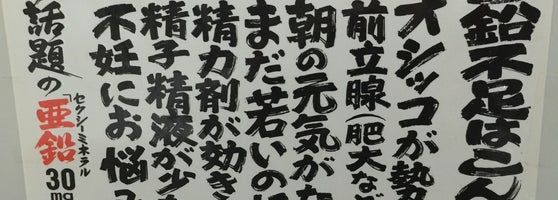 亜鉛不足はこん
オシッコが勢
前立腺(肥大など
朝の元気がな
まだ若いのに
精力剤が効き
精子 精液が少な
不妊にお悩み
話題の「亜鉛
セクシーミネラル
30mg